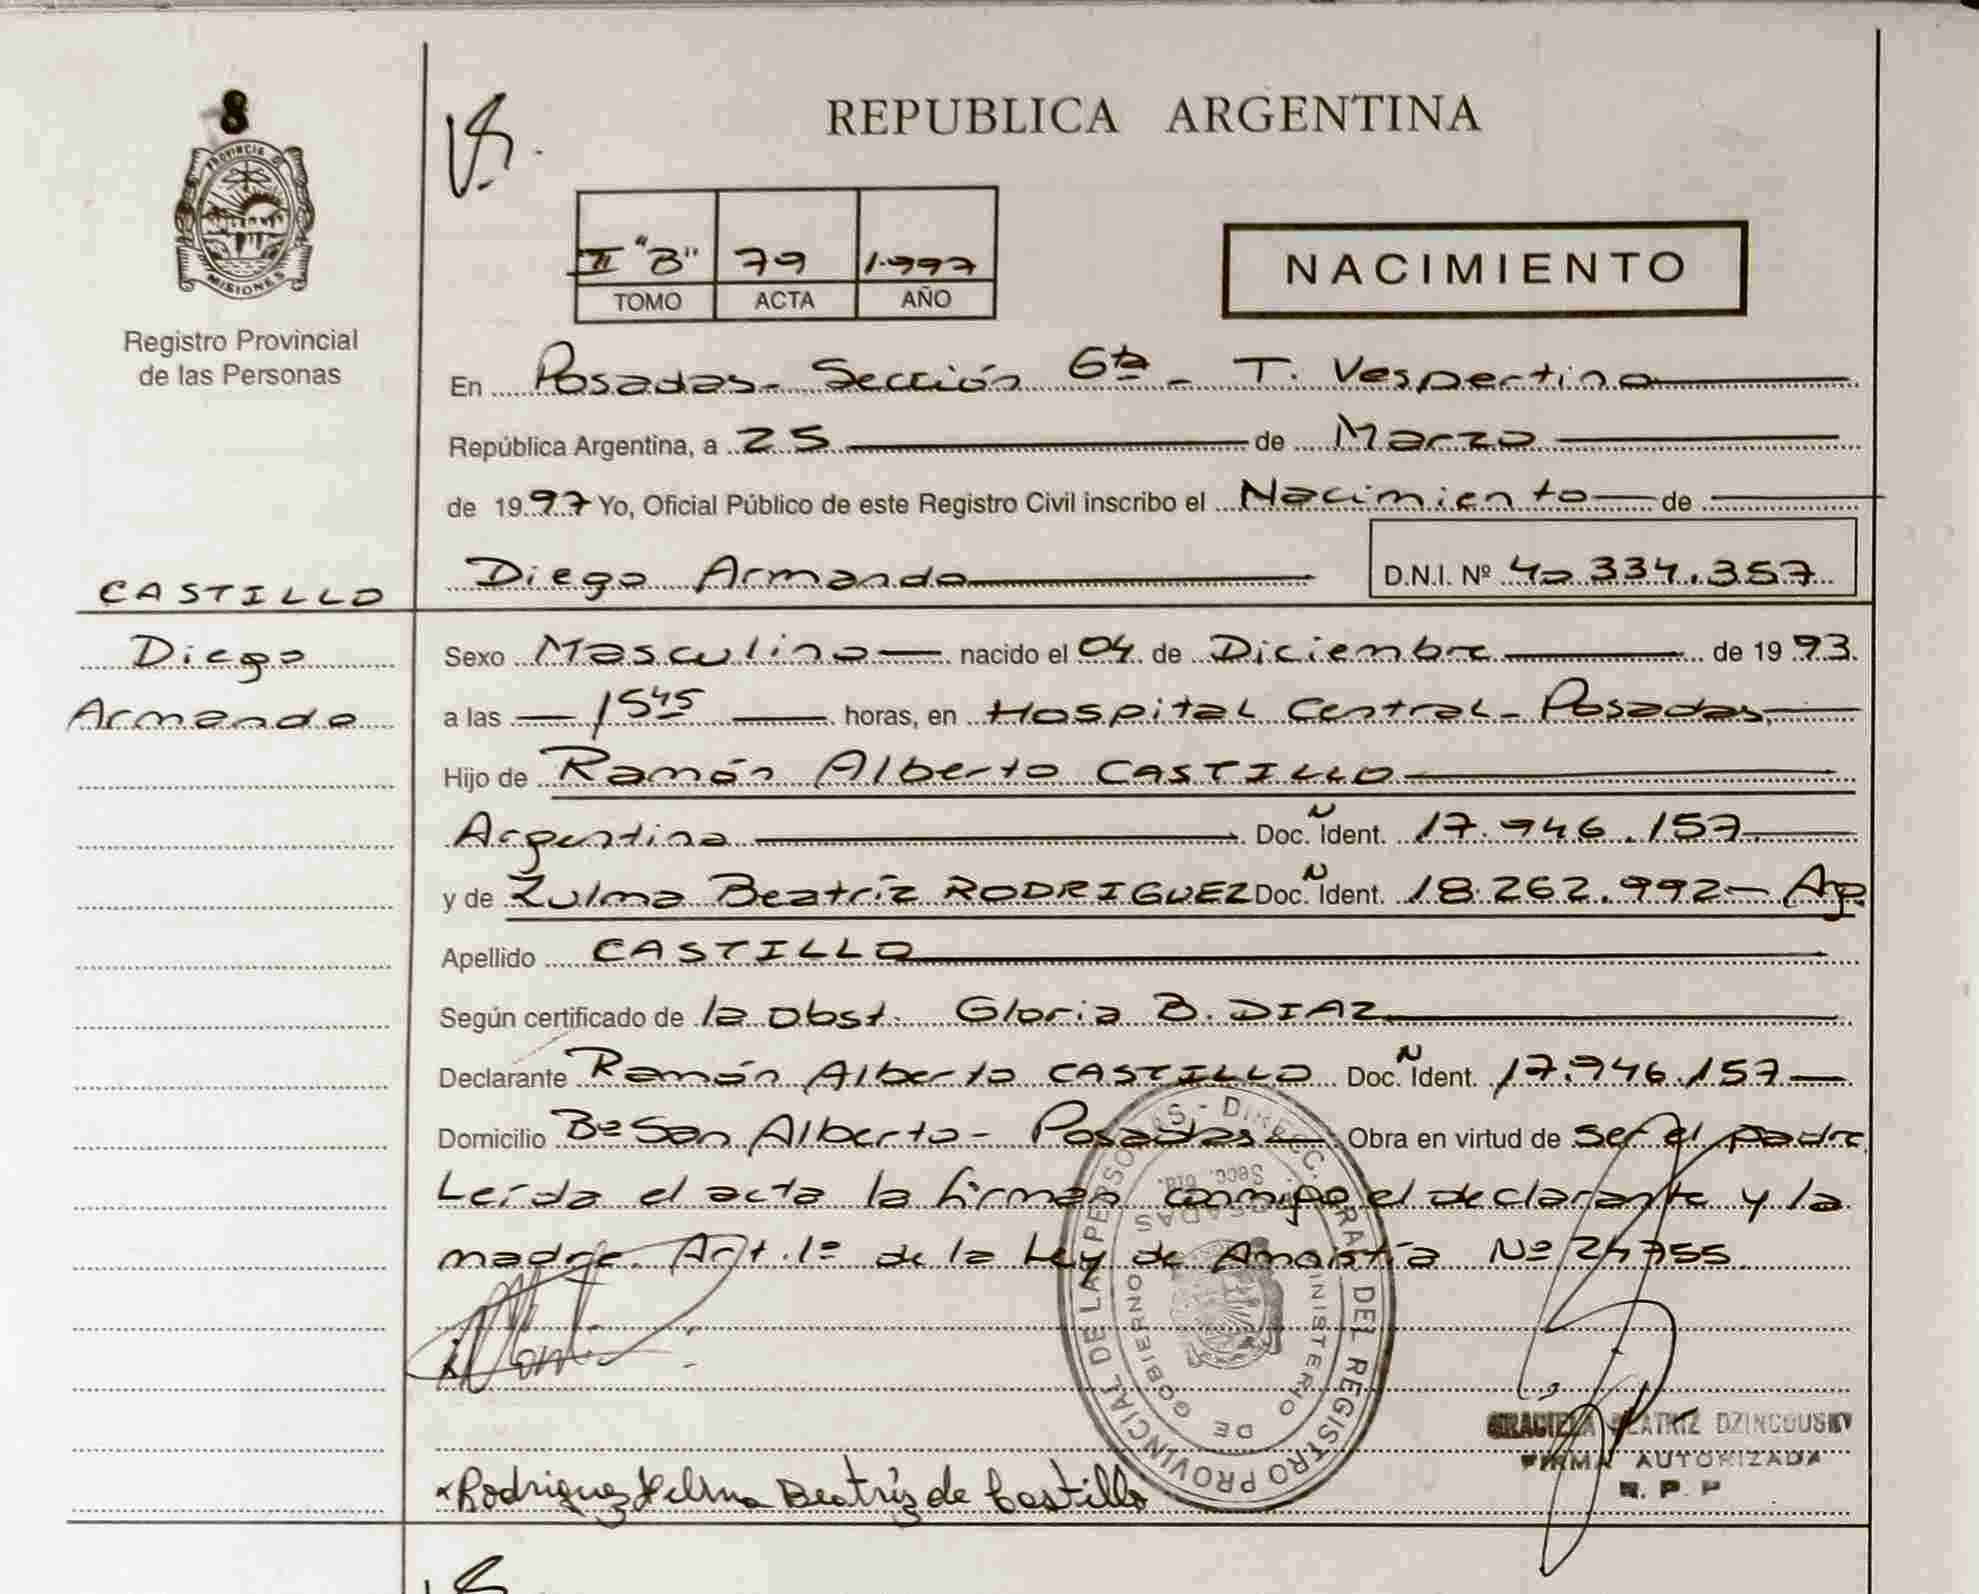 8
PROVINCIA D
MISIONES
Registro Provincial
de las Personas
REPUBLICA ARGENTINA
II "B" 79 1.997
TOMO ACTA AÑO
NACIMIENTO
En Posadas - Sección 6ta - T. Vespertino
República Argentina, a 25 de Marzo
de 1997 Yo, Oficial Público de este Registro Civil inscribo el Nacimiento de
Diego Armando D.N.I. Nº 40.334.357
CASTILLO
Diego
Armando
Sexo Masculino nacido el 04 de Diciembre de 1993.
a las 1545 horas, en Hospital Central - Posadas,
Hijo de Ramón Alberto CASTILLO
Argentina Doc. Ñ Ident. 17.946.157
y de Zulma Beatríz RODRIGUEZ Doc. Ñ Ident. 18.262.992 - Arg.
Apellido CASTILLO
Según certificado de la Obst. Gloria B. DIAZ
Declarante Ramón Alberto CASTILLO Doc. Ñ Ident. 17.946.157
Domicilio Bº San Alberto - Posadas Obra en virtud de ser el padre
Leída el acta la firman conmigo el declarante y la
madre. Art. 1º de la Ley de Amnistía Nº 24755.
DIRECC. GRAL DEL REGISTRO PROVINCIAL DE LA PERSONAS -
MINISTERIO DE GOBIERNO
Secc. 6ta.
POSADAS
GRACIELA BEATRIZ DZINCOUSKY
FIRMA AUTORIZADA
R. P. P
x Rodriguez Zulma Beatríz de Castillo